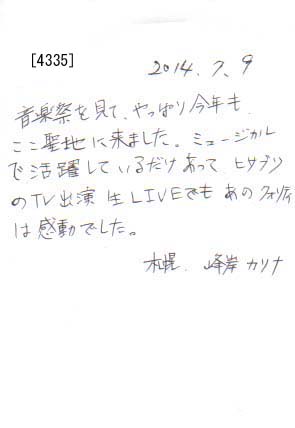 [4335]
2014.7.9
音楽祭を見て、やっぱり今年も
ここ聖地に来ました。ミュージカル
で活躍しているだけあって ヒサブリ
のTV出演 生LIVEでも あのクォリティ
は感動でした。
札幌. 峰岸 カリナ